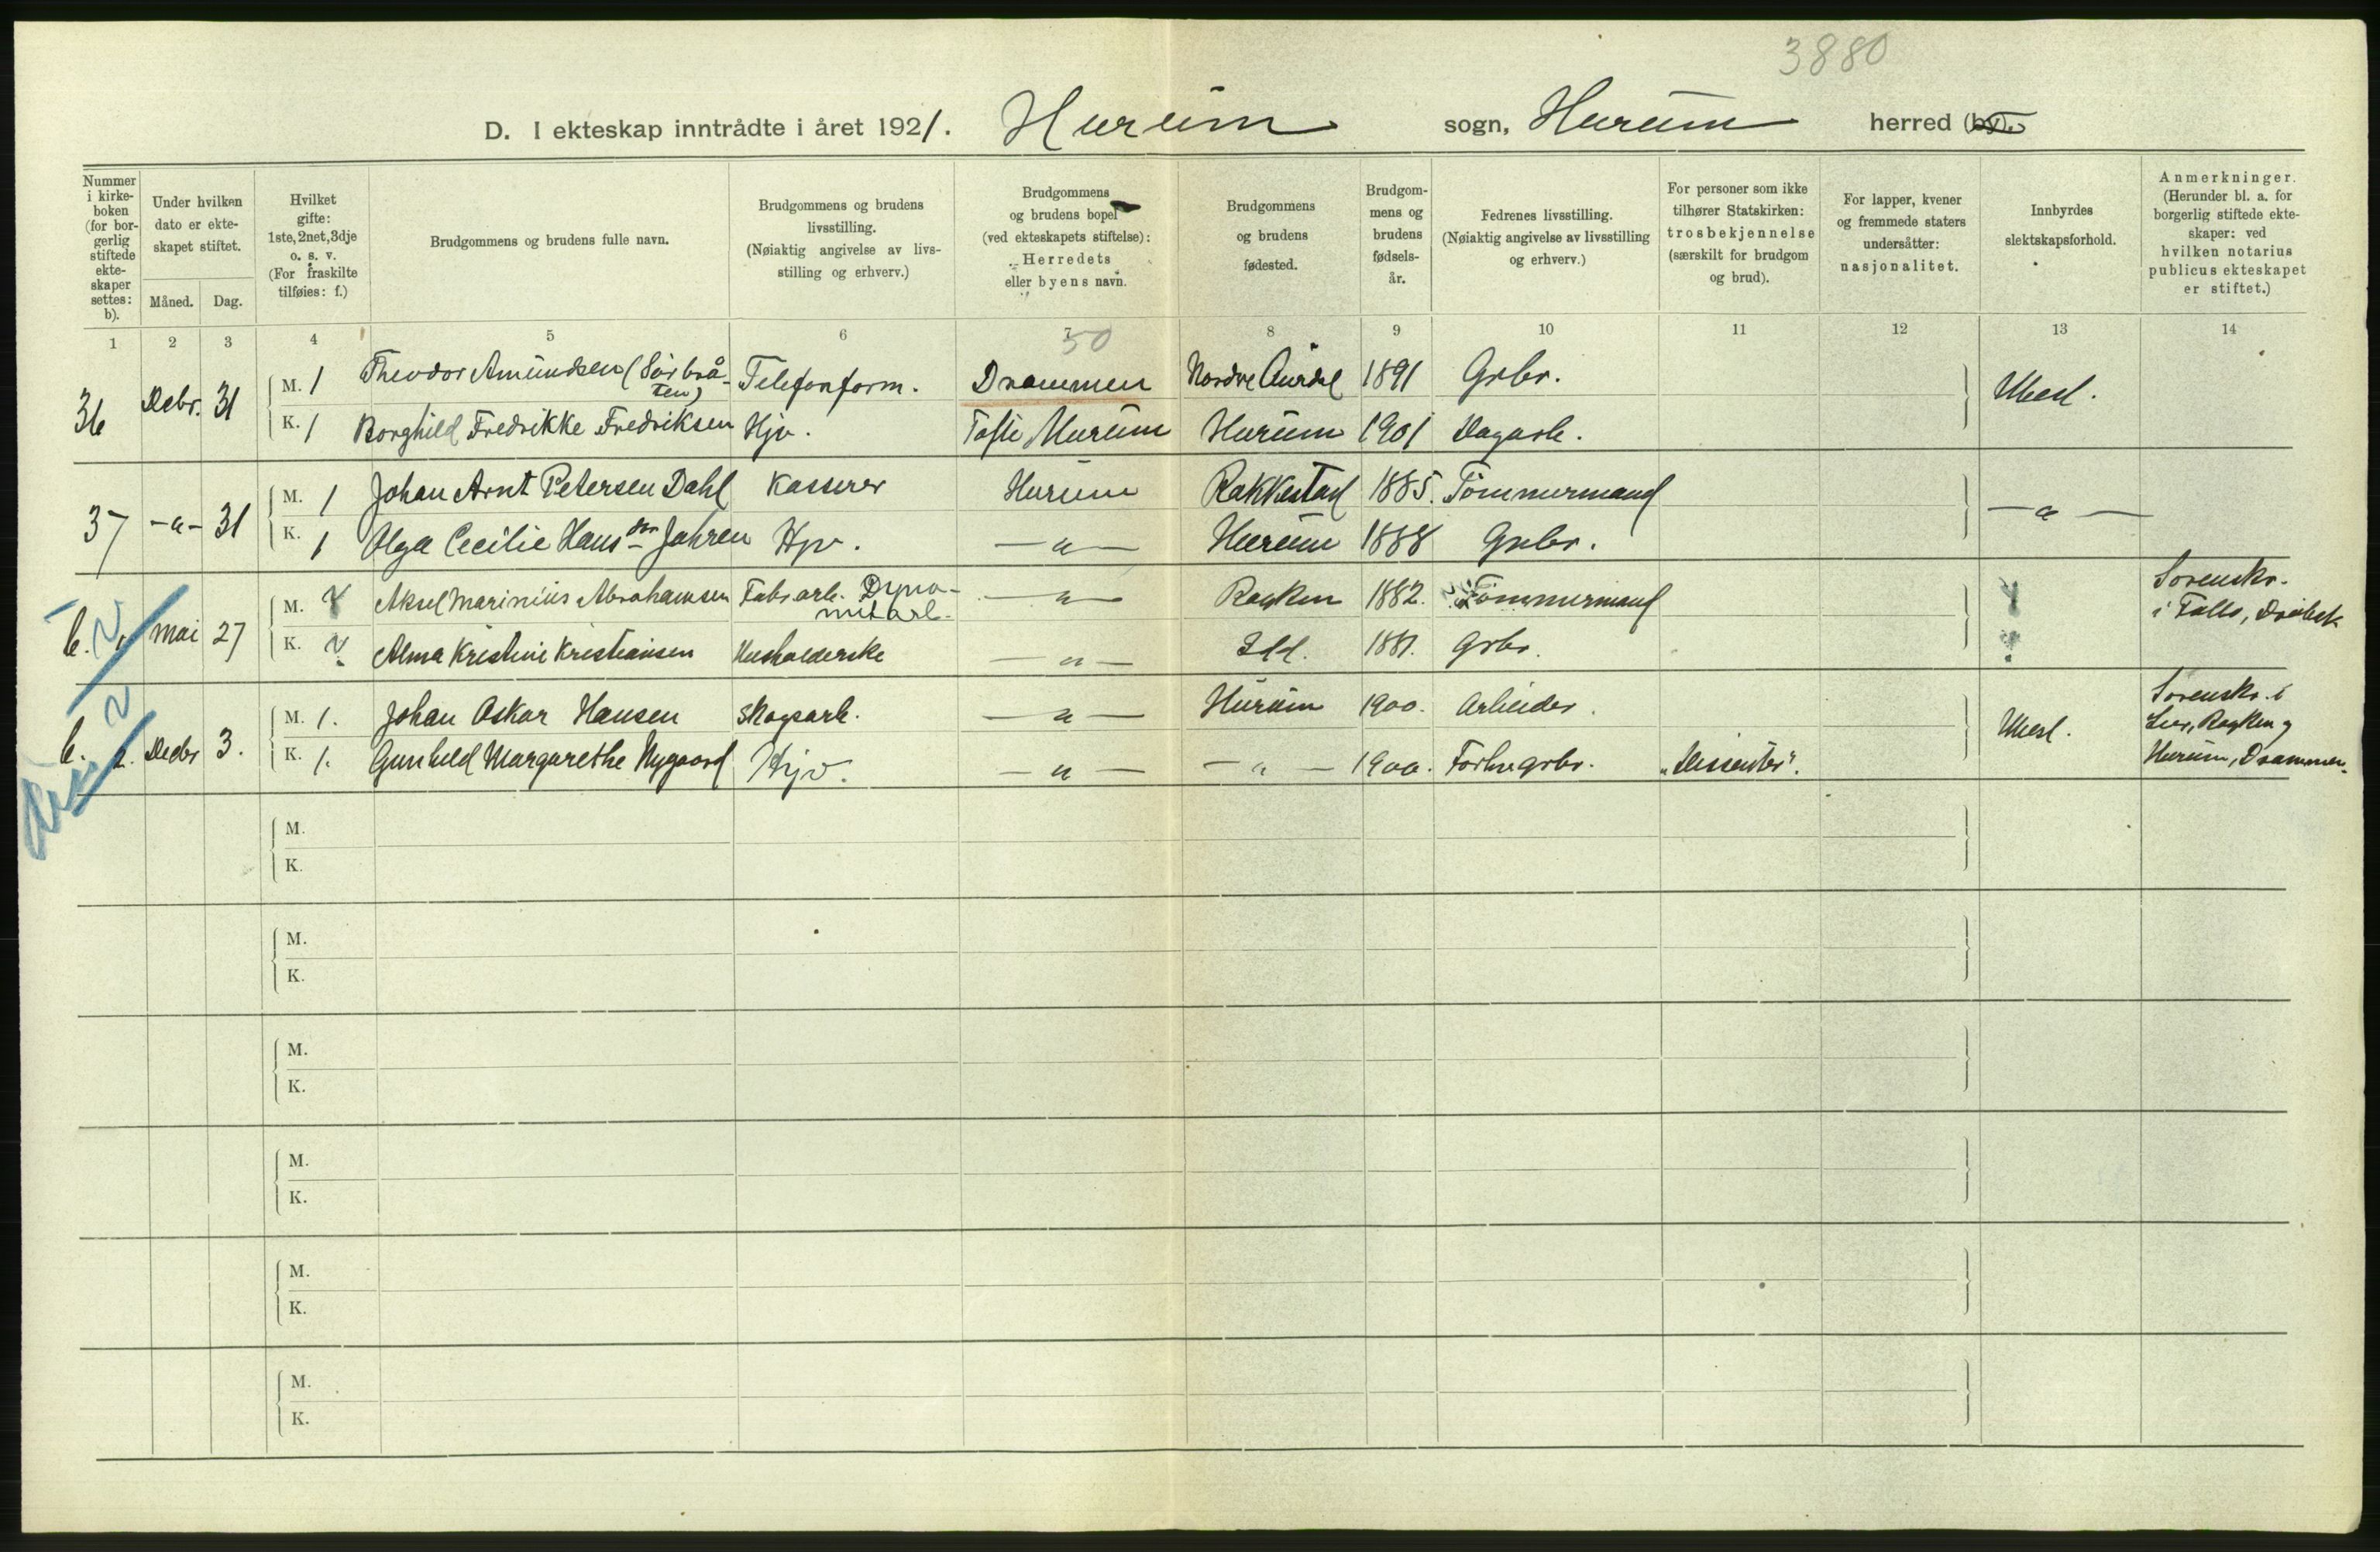 3880
D. I ekteskap inntrådte i året 1921. Hurum sogn, Hurum herred (by).
Nummer i kirke-boken (for bor-gerlig stiftede ekte-skaper settes: b).
Under hvilken dato er ekte-skapet stiftet.
Måned. Dag.
Hvilket gifte: 1ste, 2net, 3dje o. s. v. (For fraskilte tilføies: f.)
Brudgommens og brudens fulle navn.
Brudgommens og brudens livsstilling. (Nøiaktig angivelse av livs-stilling og erhverv.)
Brudgommens og brudens bopel (ved ekteskapets stiftelse): Herredets eller byens navn.
Brudgommens og brudens fødested.
Brudgom-mens og brudens fødsels-år.
Fedrenes livsstilling. (Nøiaktig angivelse av livsstilling og erhverv.)
For personer som ikke tilhører Statskirken: trosbekjennelse (særskilt for brudgom og brud).
For lapper, kvener og fremmede staters undersåtter: nasjonalitet.
Innbyrdes slektskapsforhold.
Anmerkninger. (Herunder bl. a. for borgerlig stiftede ekte-skaper: ved hvilken notarius publicus ekteskapet er stiftet.)
1 2 3 4 5 6 7 8 9 10 11 12 13 14
50
36 Debr. 31 M. 1 Theodor Amundsen (Sørbrå-ten) Telefonform. Drammen Nordre Aurdal 1891 Grbr. Ubesl.
K. 1 Borghild Fredrikke Fredriksen Hjv. Tofte Hurum Hurum 1901 Dagarb.
37 -"- 31 M. 1 Johan Arnt Petersen Dahl Kasserer Hurum Rakkestad 1885. Tømmermand -"-
K. 1 Olga Cecilie Hansdtr Jahren Hjv. -"- Hurum 1888 Grbr.
b. 1. mai 27 M. Aksel Marinius Abrahamsen Fabr.arb. Dyna-mitarb. -"- Røyken 1882. Tømmermand Sorenskr. i Follo, Drøbak
K. Alma Kristine Kristiansen Husholderske -"- Idd. 1881. Grbr.
b. 2. Decbr 3. M. 1. Johan Oskar Hansen Skogsarb. -"- Hurum 1900. Arbeider. Ubesl. Sorenskr. i Lier, Røyken og Hurum, Drammen.
K. 1. Gunhild Margarethe Nygaard Hjv. -"- -"- 1900. Forhv. grbr. "Dissenter".
M.
K.
M.
K.
M.
K.
M.
K.
M.
K.
M.
K.